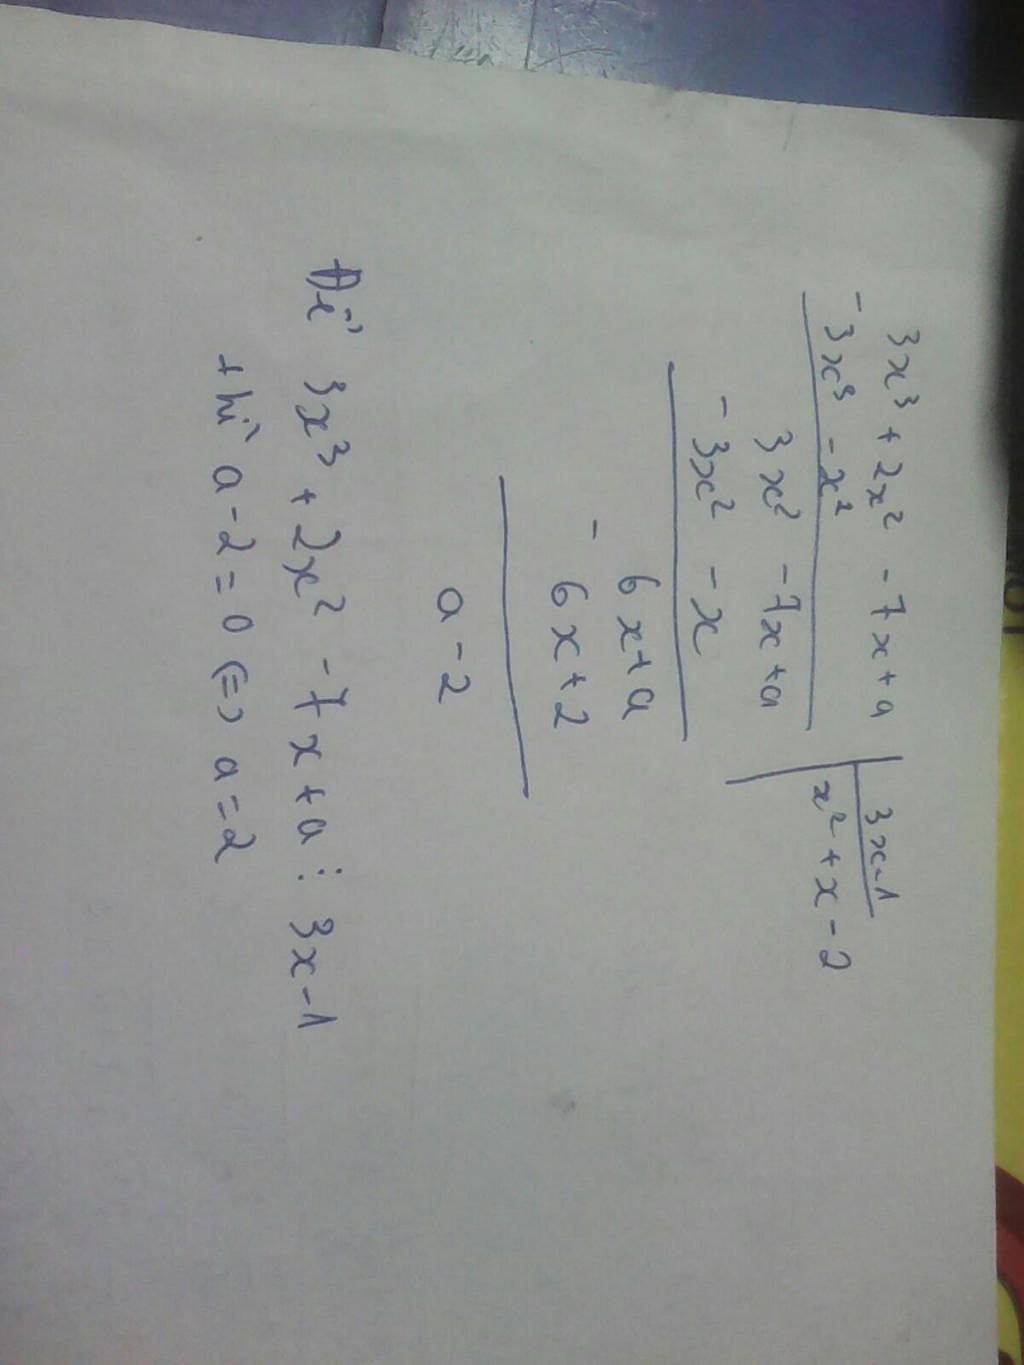 3x³ + 2x² - 7x + a | 3x-1
- 3x³ - x² | x² + x - 2
3x² - 7x + a
- 3x² - x
6x + a
- 6x + 2
a - 2
Để 3x³ + 2x² - 7x + a ⋮ 3x - 1
thì a - 2 = 0 (=) a = 2